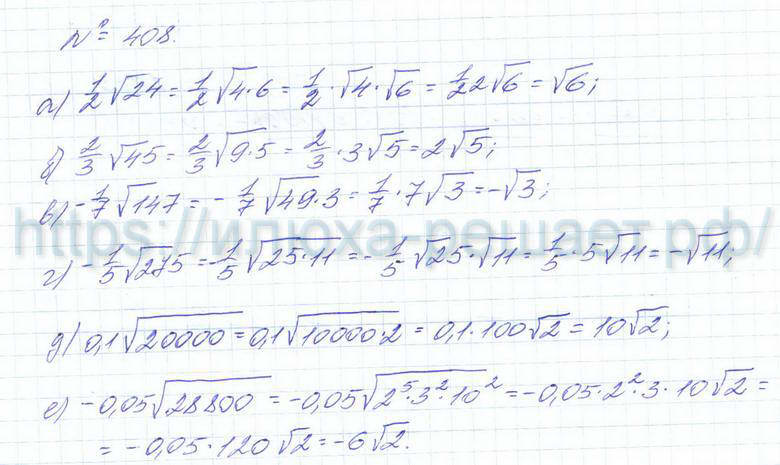 № 408.
а) 1/2 √24 = 1/2 √4·6 = 1/2 · √4 · √6 = 1/2 2√6 = √6;
б) 2/3 √45 = 2/3 √9·5 = 2/3 · 3√5 = 2√5;
в) -1/7 √147 = -1/7 √49·3 = 1/7 · 7√3 = -√3;
https://илюха-решает.рф/
г) -1/5 √275 = -1/5 √25·11 = -1/5 √25·√11 = 1/5 · 5√11 = -√11;
д) 0,1√20000 = 0,1√10000·2 = 0,1·100√2 = 10√2;
е) -0,05√28800 = -0,05√2⁵·3²·10² = -0,05·2²·3·10√2 =
= -0,05·120√2 = -6√2.